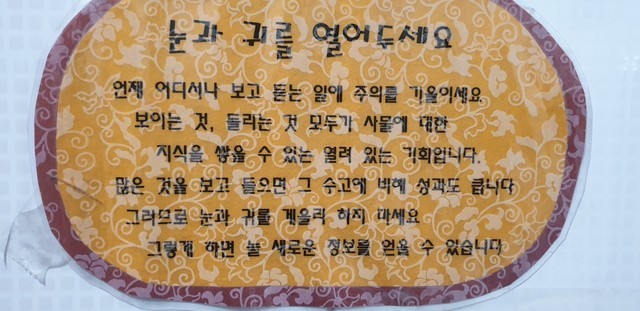 눈과 귀를 열어두세요
언제 어디서나 보고 듣는 일에 주의를 기울이세요.
보이는 것, 들리는 것 모두가 사물에 대한
지식을 쌓을 수 있는 열려 있는 기회입니다.
많은 것을 보고 들으면 그 수고에 비해 성과도 큽니다
그러므로 눈과 귀를 게을리 하지 마세요
그렇게 하면 늘 새로운 정보를 얻을 수 있습니다